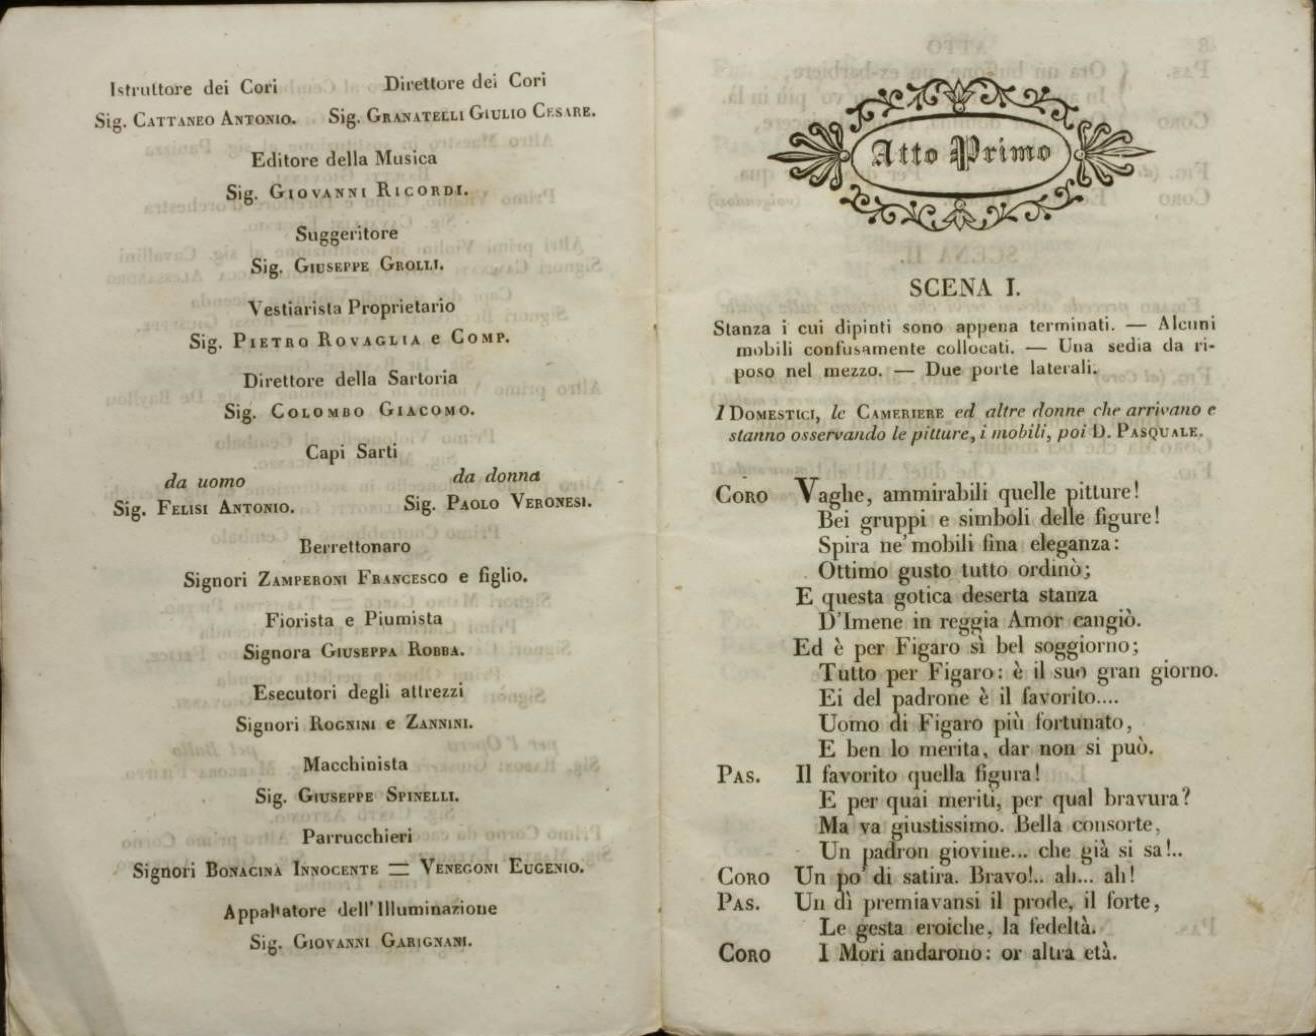 Istruttore dei Cori Direttore dei Cori
Sig. CATTANEO ANTONIO. Sig. GRANATELLI GIULIO CESARE.
Editore della Musica
Sig. GIOVANNI RICORDI.
Suggeritore
Sig. GIUSEPPE GROLLI.
Vestiarista Proprietario
Sig. PIETRO ROVAGLIA e COMP.
Direttore della Sartoria
Sig. COLOMBO GIACOMO.
Capi Sarti
da uomo da donna
Sig. FELISI ANTONIO. Sig. PAOLO VERONESI.
Berrettonaro
Signori ZAMPERONI FRANCESCO e figlio.
Fiorista e Piumista
Signora GIUSEPPA ROBBA.
Esecutori degli attrezzi
Signori ROGNINI e ZANNINI.
Macchinista
Sig. GIUSEPPE SPINELLI.
Parrucchieri
Signori BONACINA INNOCENTE = VENEGONI EUGENIO.
Appaltatore dell'Illuminazione
Sig. GIOVANNI GARIGNANI.
Atto Primo
SCENA I.
Stanza i cui dipinti sono appena terminati. — Alcuni
mobili confusamente collocati. — Una sedia da ri-
poso nel mezzo. — Due porte laterali.
I DOMESTICI, le CAMERIERE ed altre donne che arrivano e
stanno osservando le pitture, i mobili, poi D. PASQUALE.
CORO Vaghe, ammirabili quelle pitture!
Bei gruppi e simboli delle figure!
Spira ne' mobili fina eleganza:
Ottimo gusto tutto ordinò;
E questa gotica deserta stanza
D'Imene in reggia Amor cangiò.
Ed è per Figaro sì bel soggiorno;
Tutto per Figaro: è il suo gran giorno.
Ei del padrone è il favorito....
Uomo di Figaro più fortunato,
E ben lo merita, dar non si può.
PAS. Il favorito quella figura!
E per quai meriti, per qual bravura?
Ma va giustissimo. Bella consorte,
Un padron giovine... che già si sa!..
CORO Un po' di satira. Bravo!.. ah... ah!
PAS. Un dì premiavansi il prode, il forte,
Le gesta eroiche, la fedeltà.
CORO I Mori andarono: or altra età.